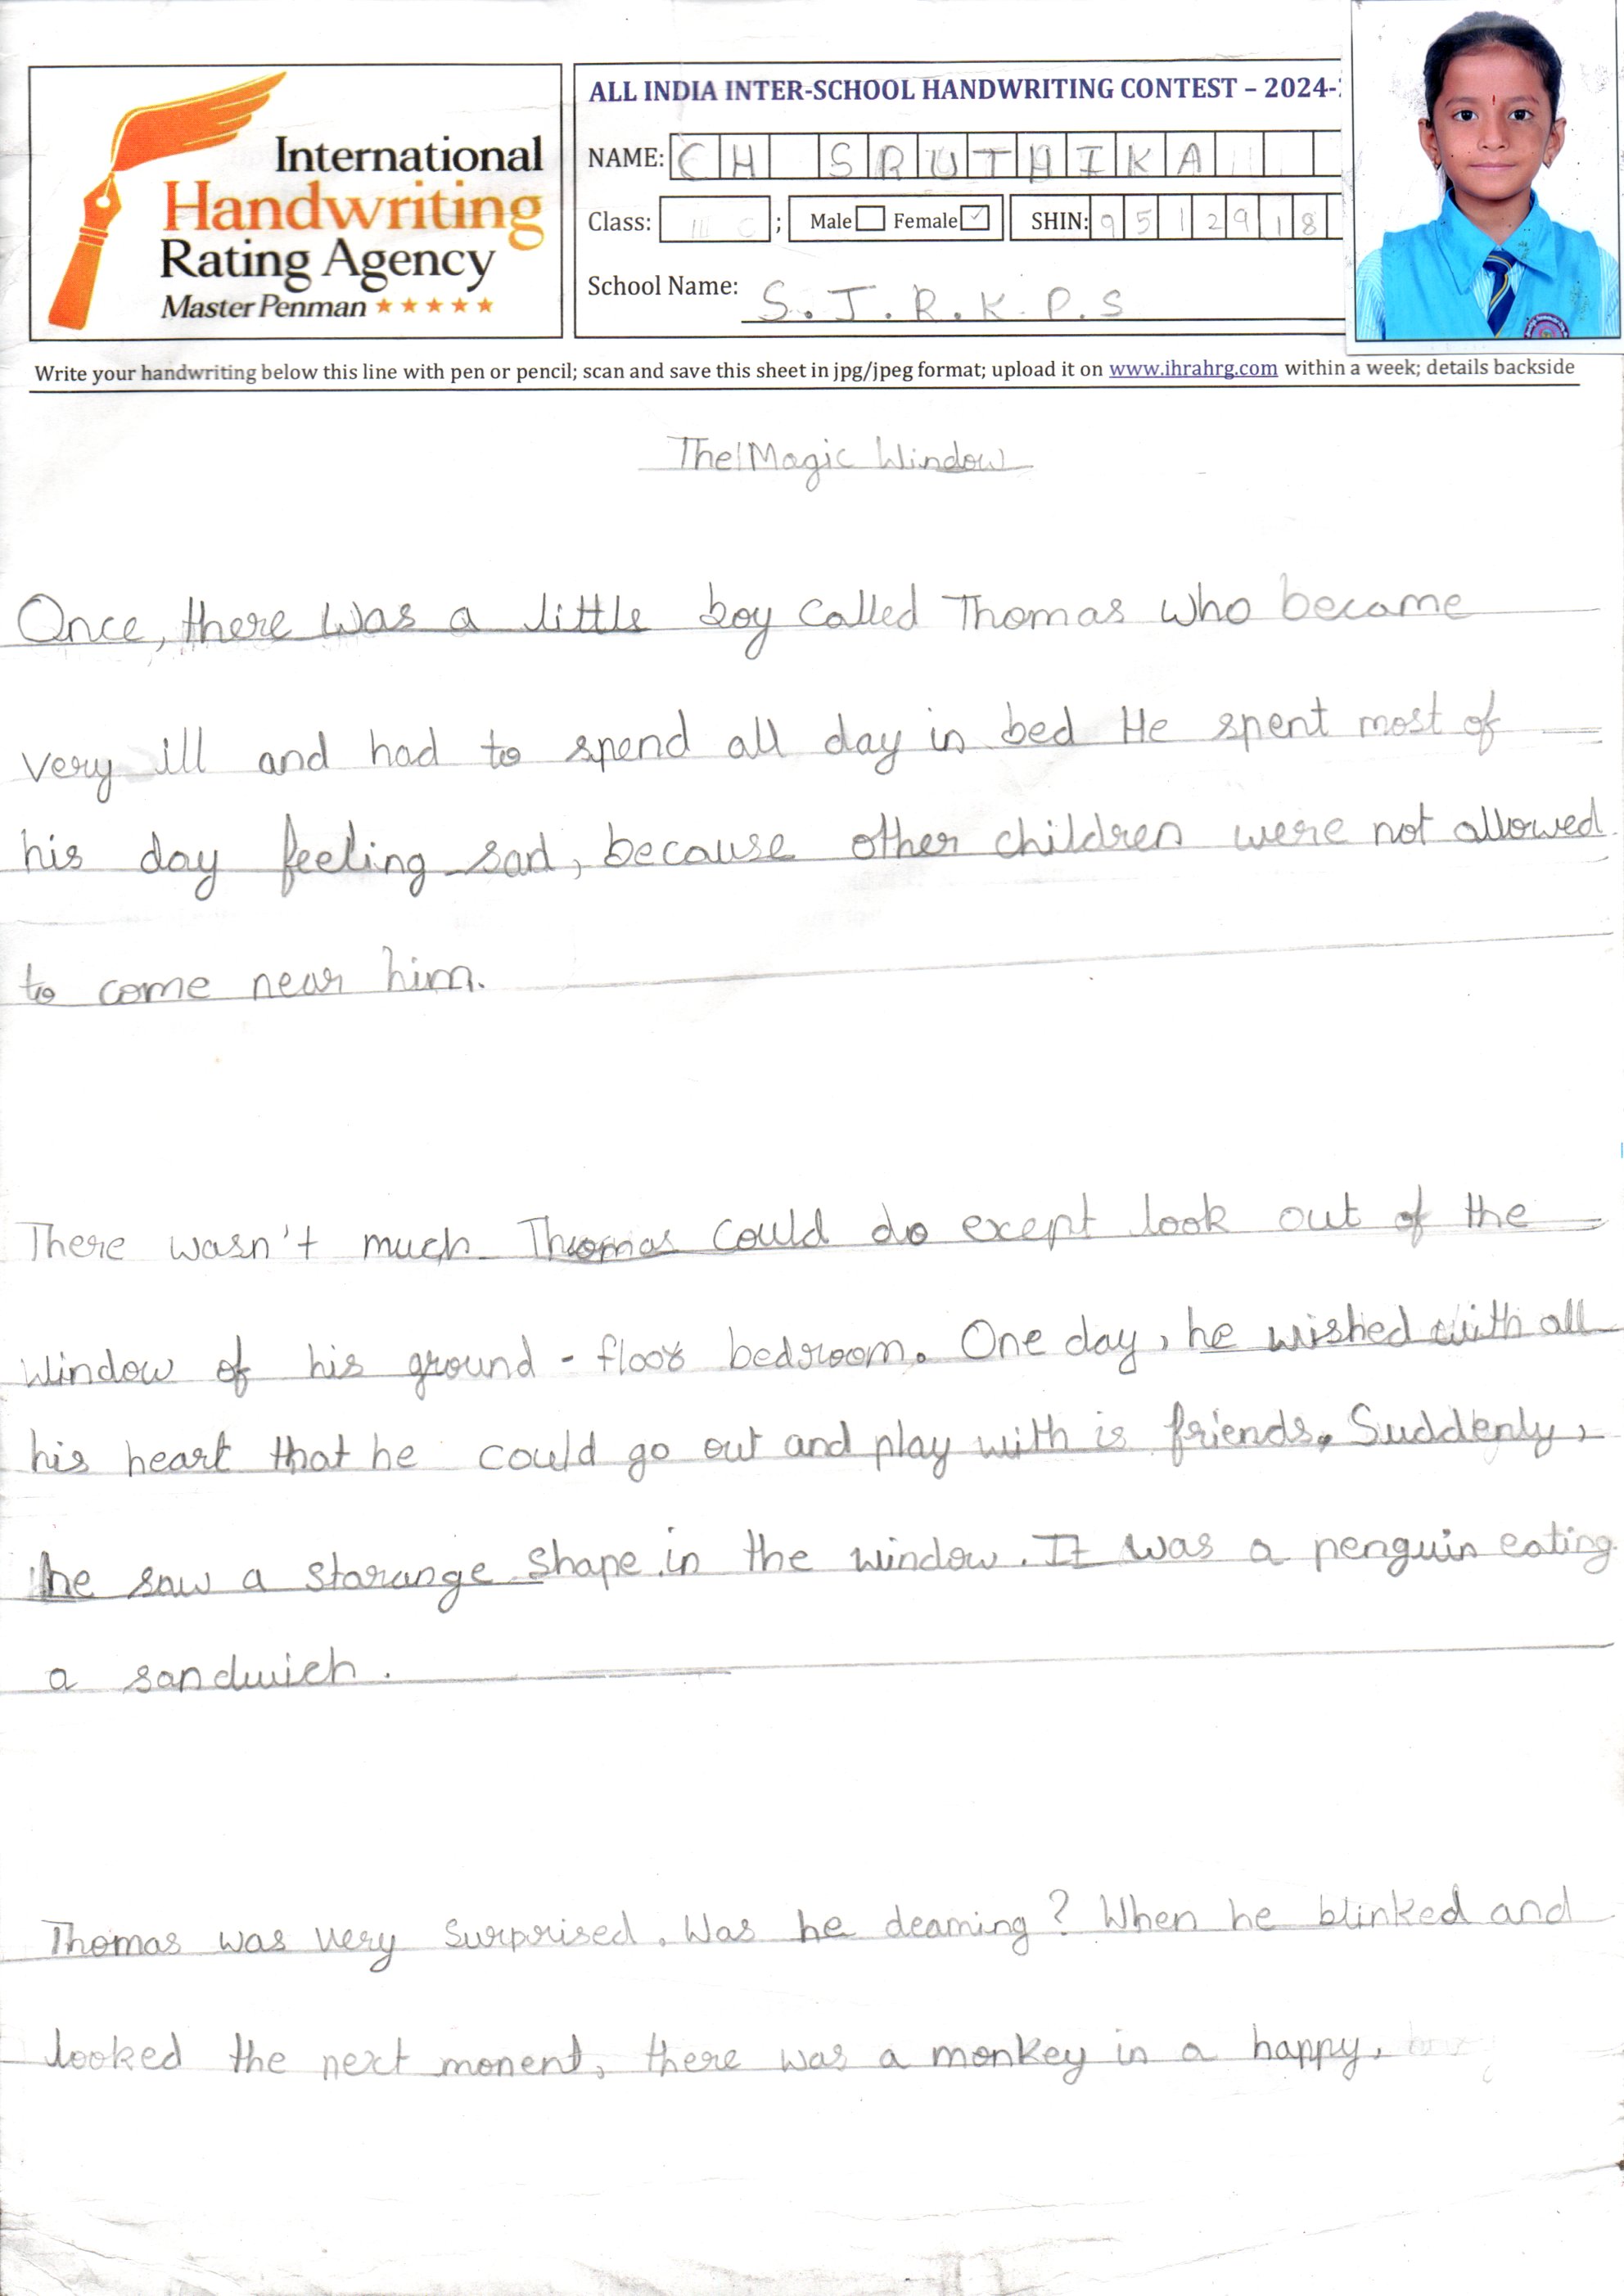 International
Handwriting
Rating Agency
Master Penman ★★★★★
ALL INDIA INTER-SCHOOL HANDWRITING CONTEST – 2024-
NAME: CH SRUTHIKA
Class: III C ; Male Female ✓ SHIN: 9512918
School Name: S.J.R.K.P.S
Write your handwriting below this line with pen or pencil; scan and save this sheet in jpg/jpeg format; upload it on www.ihrahrg.com within a week; details backside
The Magic Window
Once, there was a little boy called Thomas who became
very ill and had to spend all day in bed He spent most of
his day feeling sad, because other children were not allowed
to come near him.
There wasn't much Thomas could do except look out of the
window of his ground - floor bedroom. One day, he wished with all
his heart that he could go out and play with is friends. Suddenly,
he saw a starange shape in the window. It was a penguin eating
a sandwich.
Thomas was very surprised. Was he deaming? When he blinked and
looked the next monent, there was a monkey in a happy,